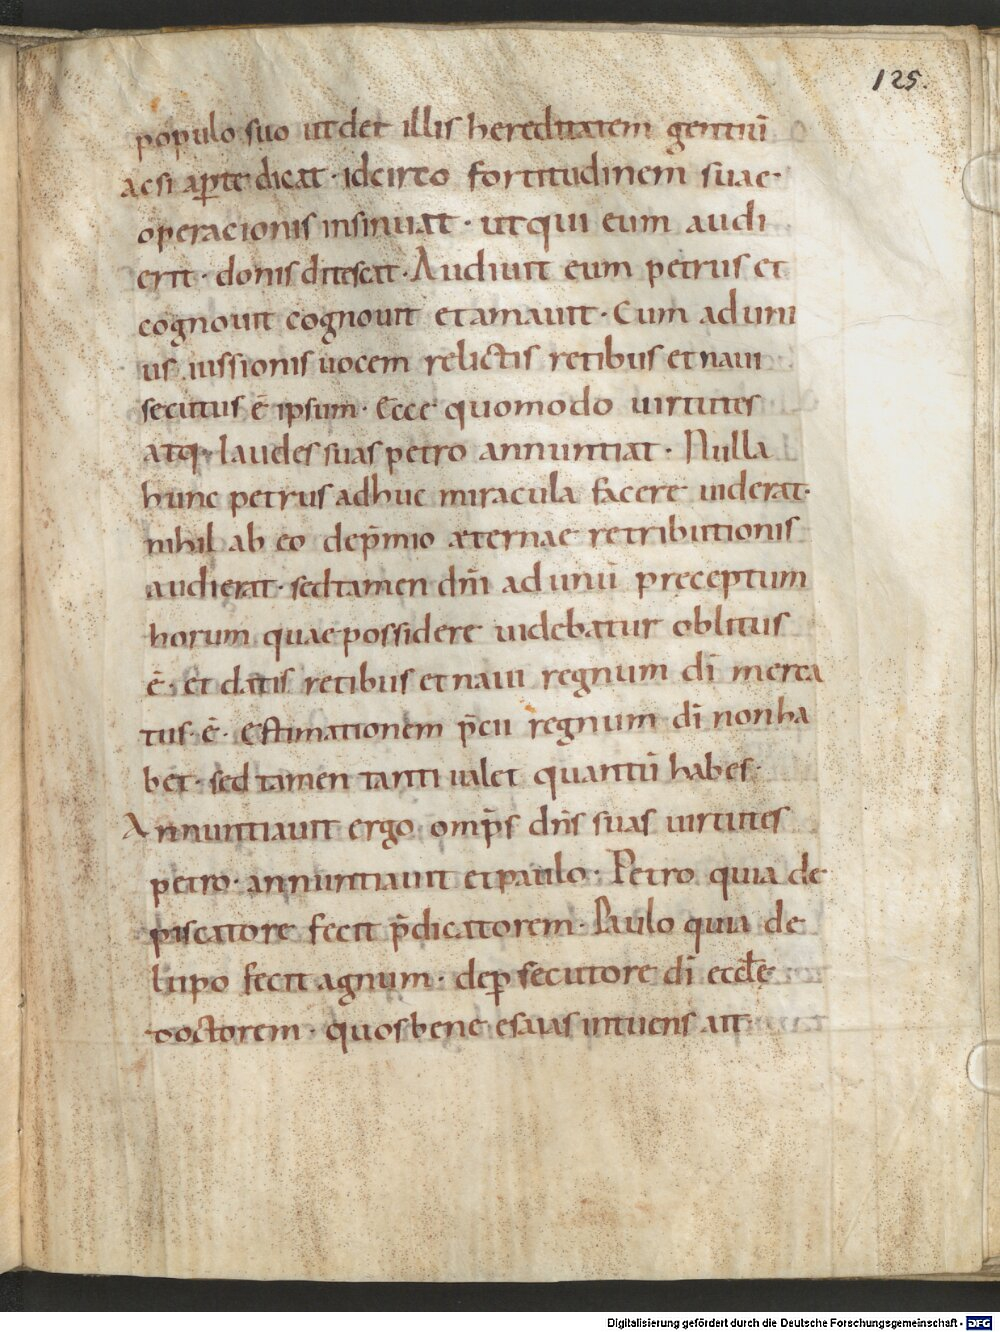 125.
populo suo ut det illis hereditatem gentiū
ac si aꝑte dicat · idcirco fortitudinem suae
operacionis insinuat · ut qui eum audi
erit · donis ditescat · Audiuit eum petrus et
cognouit cognouit et amauit · Cum ad uni
us iussionis uocem relictis retibus et naui
secutus ē ipsum · Ecce quomodo uirtutes
atq· laudes suas petro annuntiat · Nulla
hunc petrus adhuc miracula facere uiderat·
nihil ab eo de p̄mio æternae retributionis
audierat · sed tamen dn̄i ad unū pręceptum
horum quae possidere uidebatur oblitus
ē · et datis retibus et naui regnum dī merca
tus · ē · Estimationem p̄cii regnum dī non ha
bet · sed tamen tanti ualet quantū habes·
Annuntiauit ergo omp̄s dn̄s suas uirtutes
petro · annuntiauit et paulo · Petro quia de
piscatore fecit p̄dicatorem · Paulo quia de
lupo fecit agnum · de ꝑsecutore dī eccl̄ę
doctorem · quos bene esaias intuens ait
Digitalisierung gefördert durch die Deutsche Forschungsgemeinschaft - DFG